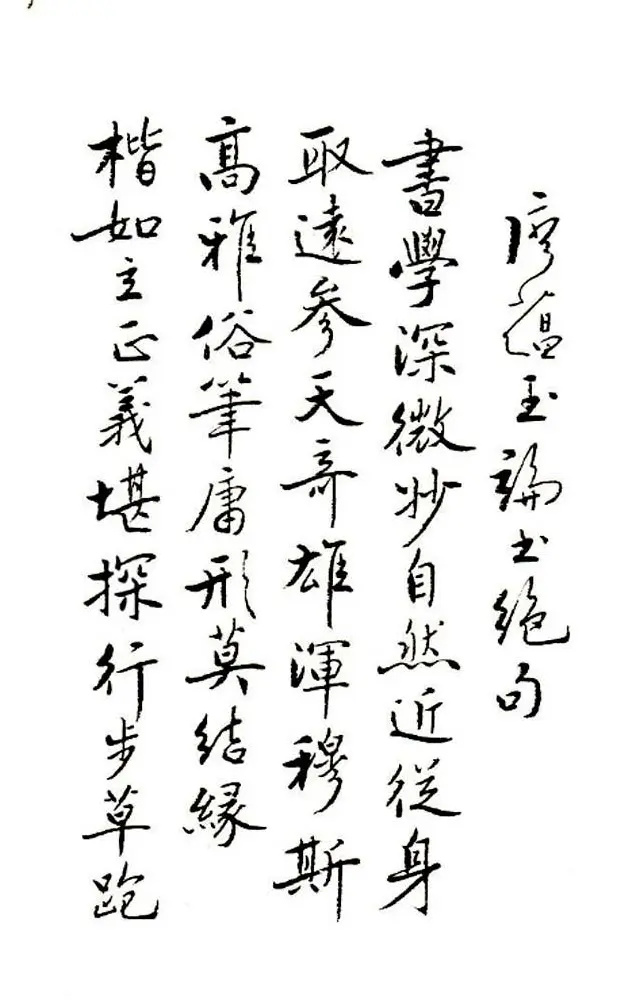 廖蘊玉論书絕句
書學深微妙自然近從身
取遠參天奇雄渾穆斯
高雅俗筆庸形莫結緣
楷如立正義堪探行步草跑